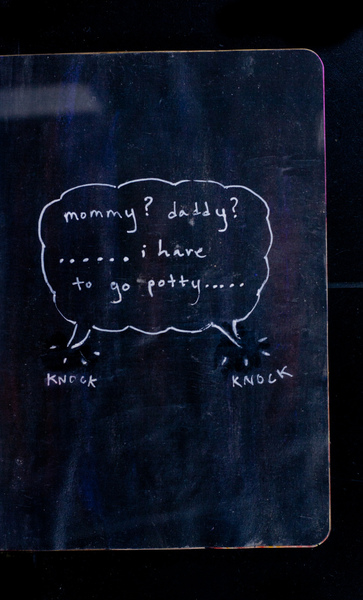 mommy? daddy?
...... i have
to go potty.....
KNOCK
KNOCK